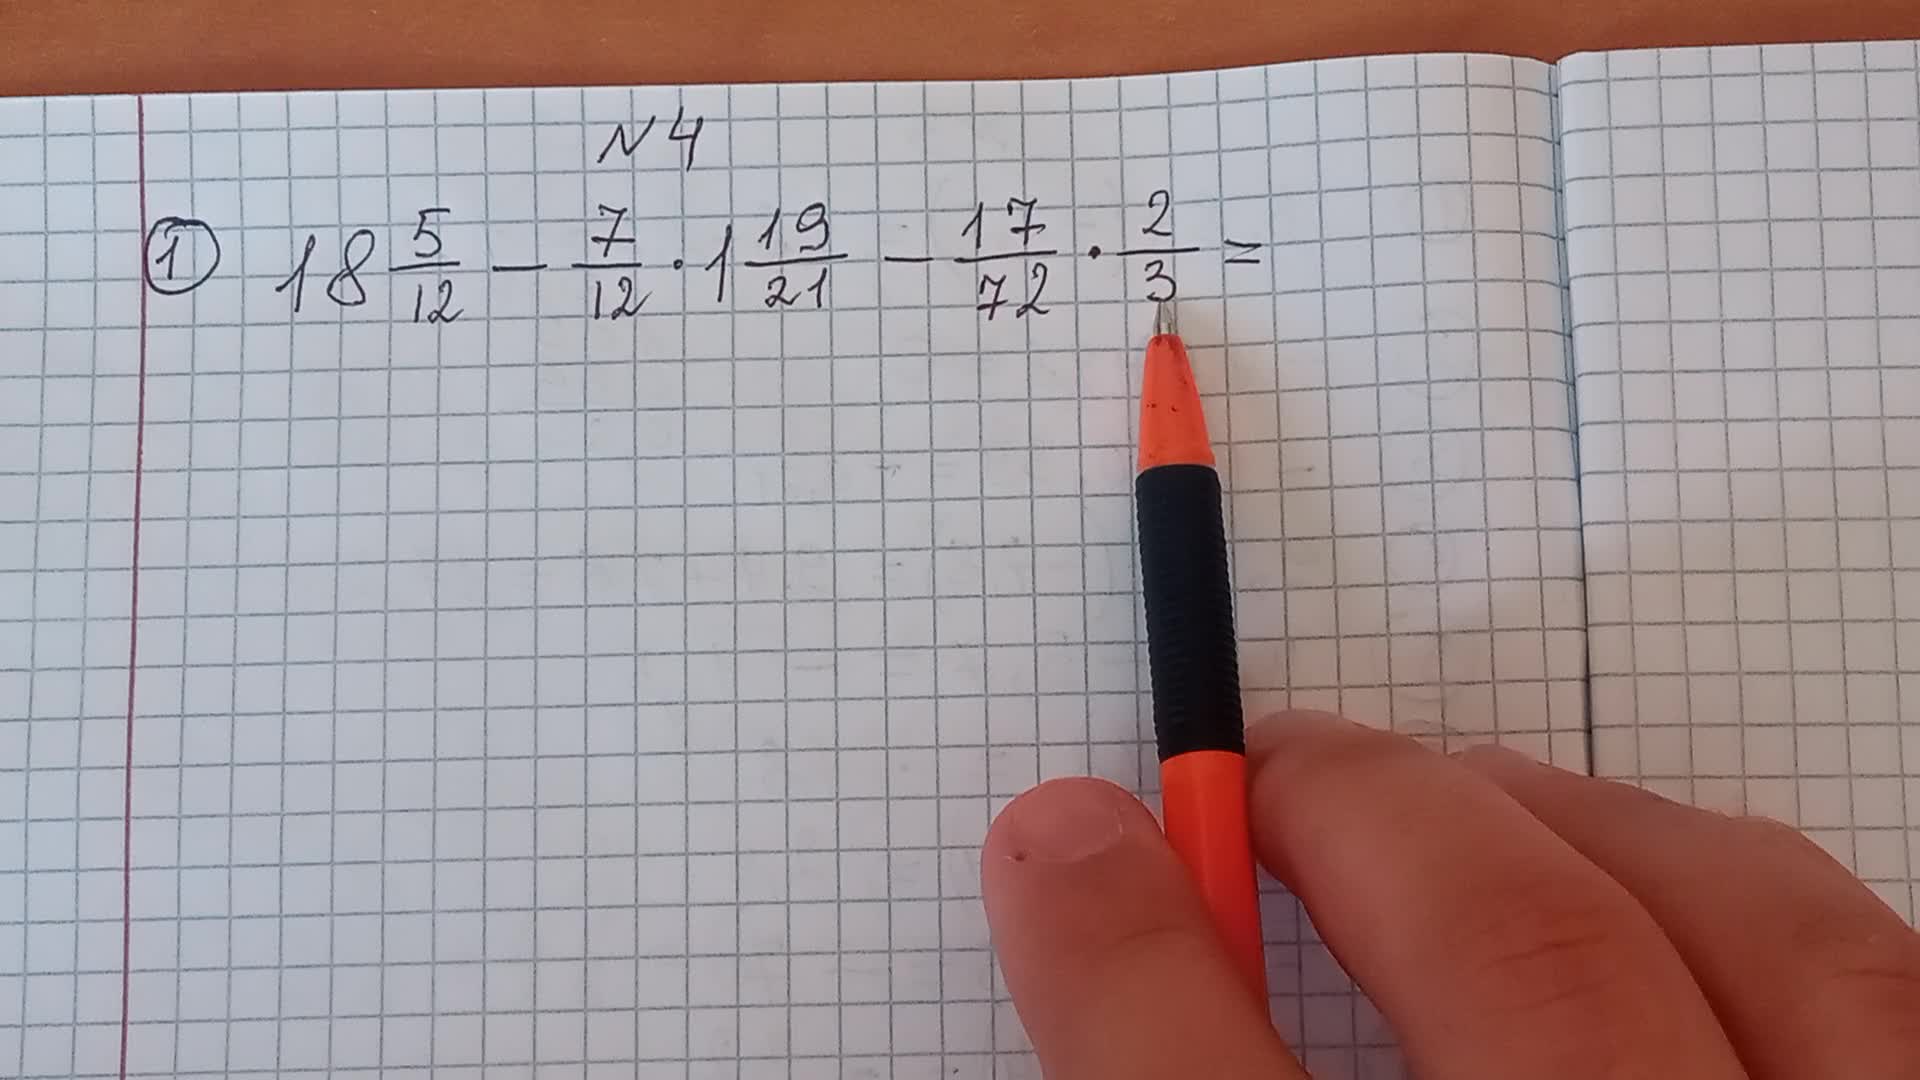 N 4
① 18 5/12 - 7/12 · 1 19/21 - 17/72 · 2/3 =